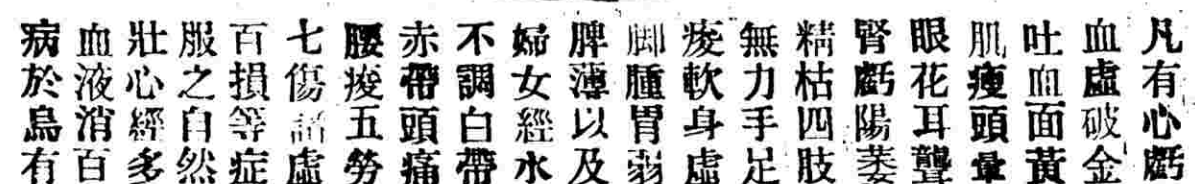 凡有心虧
血虛破金
吐血面黃
肌瘦頭暈
眼花耳聾
腎虧陽萎
精枯四肢
無力手足
痠軟身虛
脚腫胃弱
脾薄以及
婦女經水
不調白帶
赤帶頭痛
腰痠五勞
七傷諸虛
百損等症
服之自然
壯心經多
血液消百
病於烏有